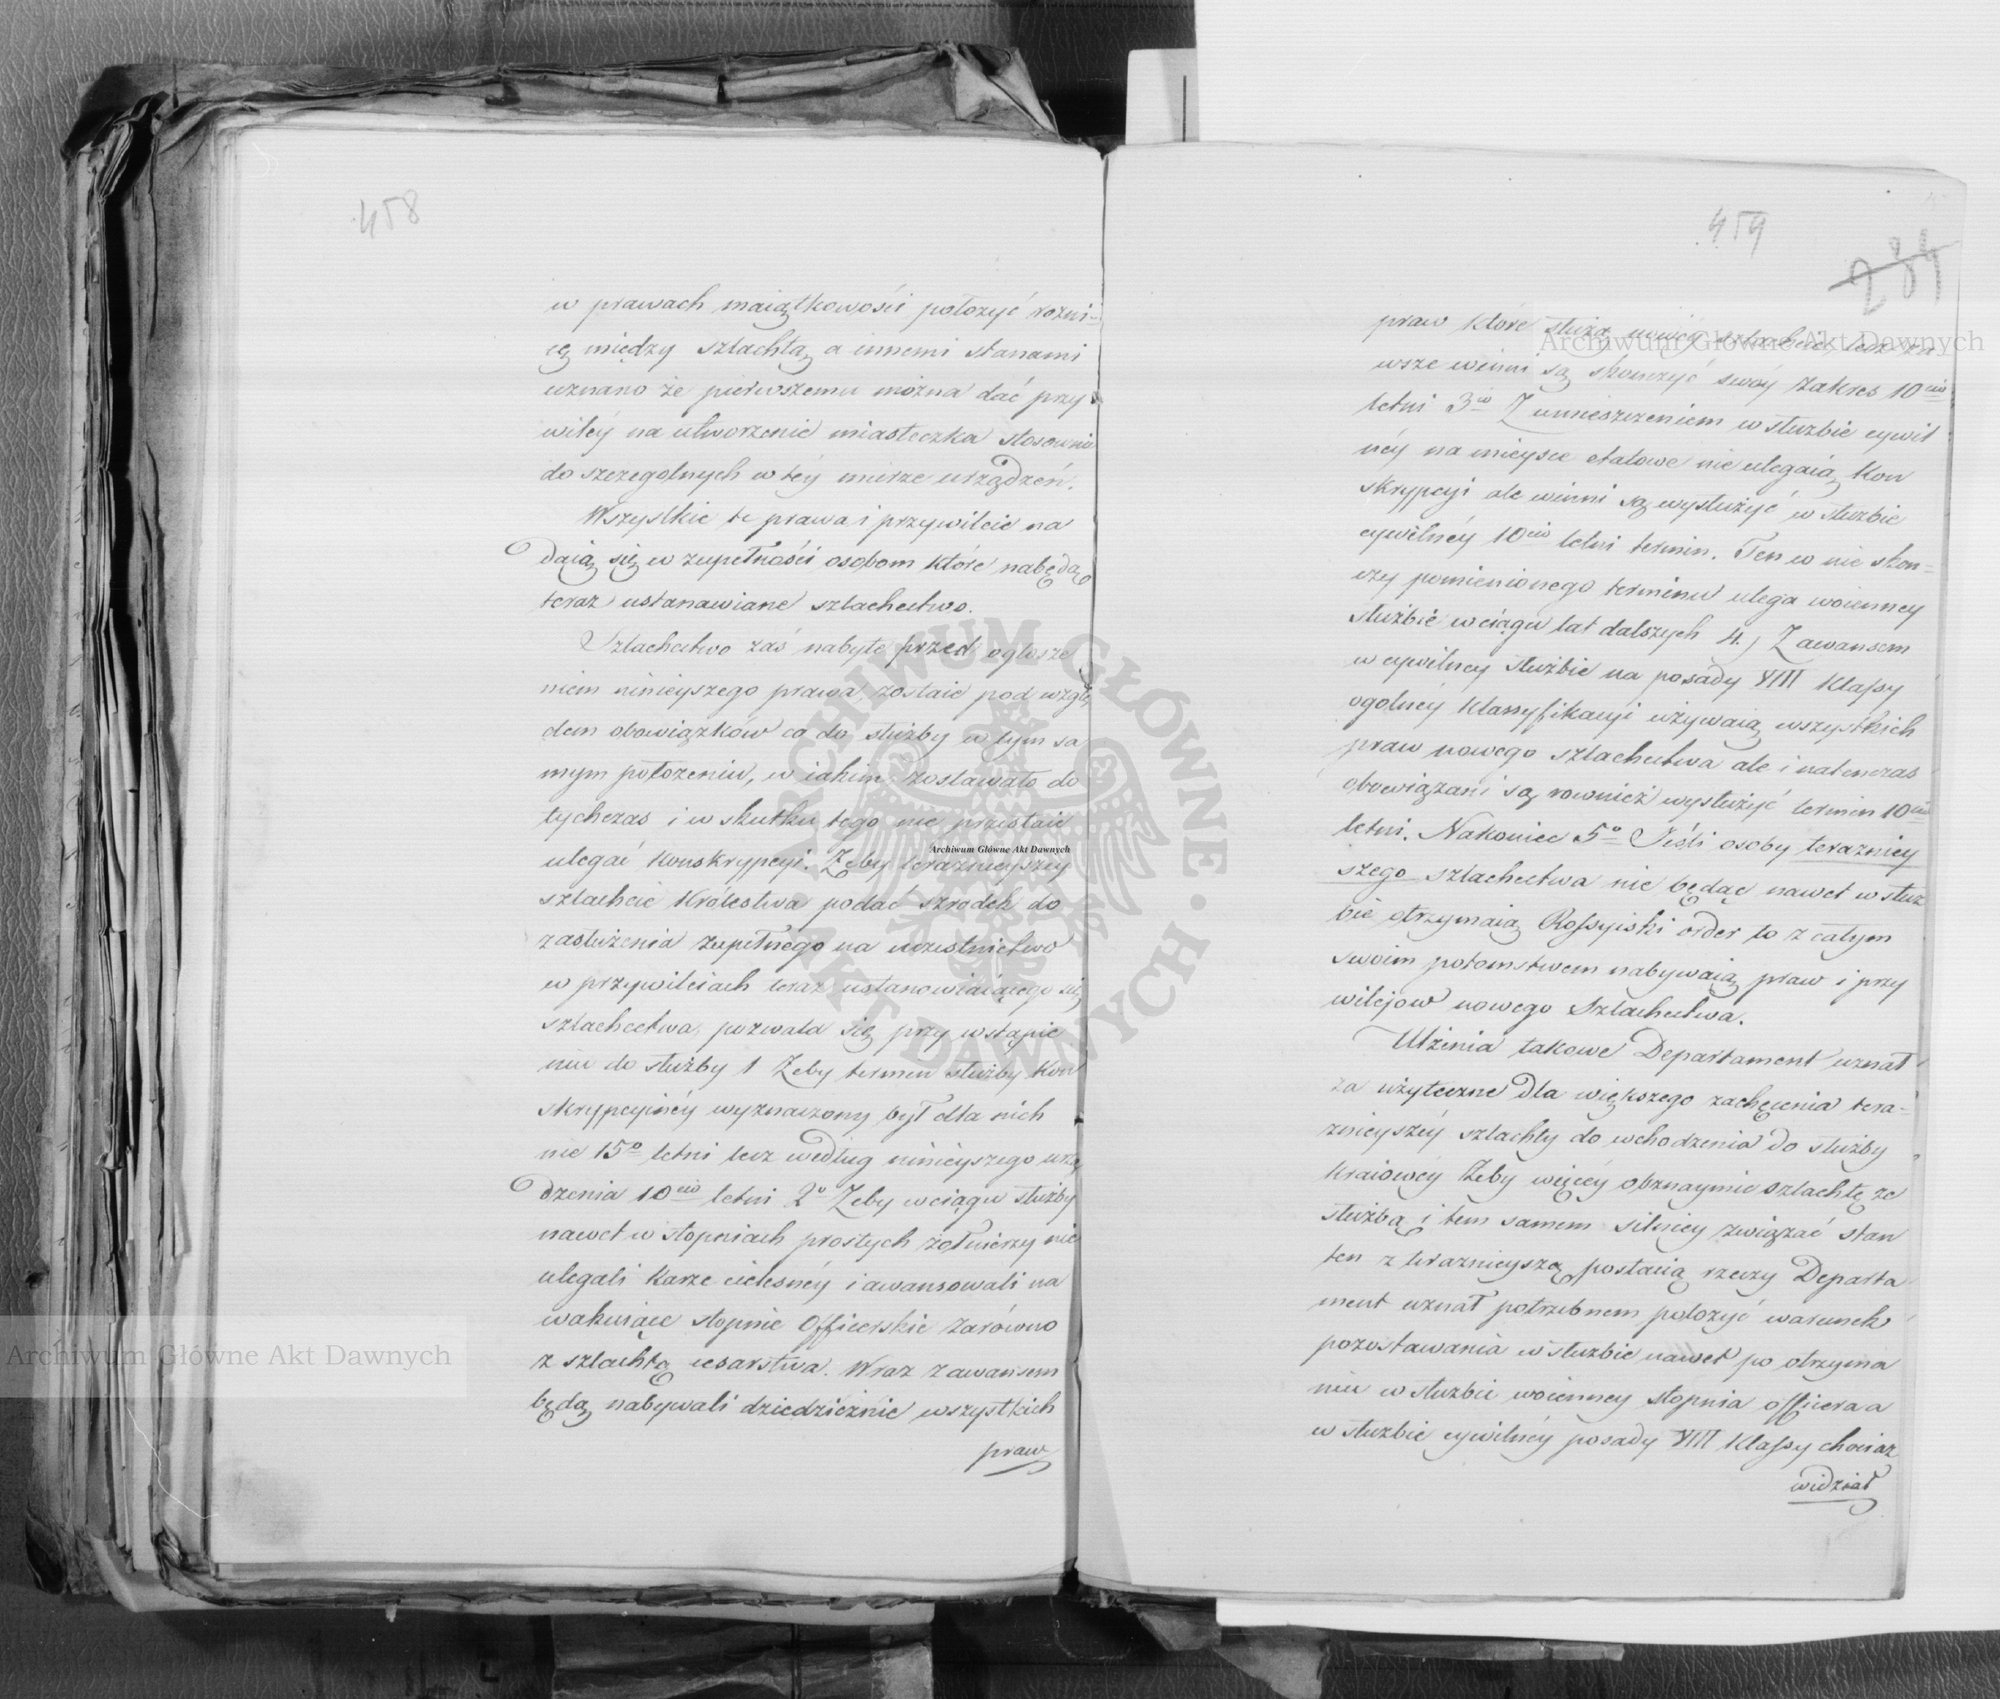 458
w prawach maiątkowości położyć rożni-
cę między szlachtą a innemi stanami
uznano że pierwszemu można dać przy
wiléy na utworzenie miasteczka stosownie
do szczegolnych w téy mierze urządzeń.
Wszystkie te prawa i przywileie na
daią się w zupełności osobom które nabędą
teraz ustanawiane szlachectwo.
Szlachectwo zaś nabyte przed ogłosze
niem ninieyszego prawa, zostaie pod wzglę
dem obowiązków co do służby w tym sa
mym położeniu, w iakim zostawało do
tychczas i w skutku tego nie przestaie
ulegać Konskrypcyi. Żeby teraznieyszey
szlachcie Królestwa podać szrodek do
zasłużenia zupełnego na uczestnictwo
w przywileiach teraz ustanowiaiącego się
szlachectwa, pozwala się przy wstąpie
niu do służby 1 Żeby termin służby Kon
skrypcyinéy wyznaczony był dla nich
nie 15º letni lecz według ninieyszego urzą
dzenia 10cio letni 2º Żeby w ciągu służby
nawet w stopniach prostych żołnierzy nie
ulegali Karze cielesnéy i awansowali na
wakuiące stopnie Officerskie zarówno
z szlachtą cesarstwa. Wraz z awansem
będą nabywali dziedzicznie wszystkich
praw
459
284
praw które służą nowéy szlachcie, lecz za
wsze winni są skonczyć swóy zakres 10cio
letni 3io Z umieszczeniem w służbie cywil
néy na mieysce etatowe nie ulegaią Kon
skrypcyi ale winni są wysłużyć w służbie
cywilnéy 10cio letni termin. Ten co nie skon-
czy pomienionego terminu ulega woienney
służbie w ciągu lat dalszych 4.) Z awansem
w cywilney służbie na posady VIII Klassy
ogolnéy Klassyfikacyi używaią wszystkich
praw nowego szlachectwa ale i natenczas
obowiązani są rownież wysłużyć termin 10cio
letni. Nakoniec 5º Jeśli osoby terazniey
szego szlachectwa nie będąc nawet w służ
bie otrzymaią Rossyiski order to z całym
swoim potomstwem nabywaią praw i przy
wilejow nowego Szlachectwa.
Ulżenia takowe Departament uznał
za użyteczne dla większego zachęcenia tera-
znieyszéy szlachty do wchodzenia do służby
kraiowéy Żeby więcéy obznaymić szlachtę ze
służbą i tem samem silniey związać stan
ten z teraznieyszą postacią rzeczy Departa
ment uznał potrzebnem położyć warunek
pozostawania w służbie nawet po otrzyma
niu w służbie woienney stopnia officera a
w służbie cywilnéy posady VIII Klassy chociaż
widział
Archiwum Główne Akt Dawnych
Archiwum Główne Akt Dawnych
Archiwum Główne Akt Dawnych
ARCHIWUM GŁÓWNE AKT DAWNYCH